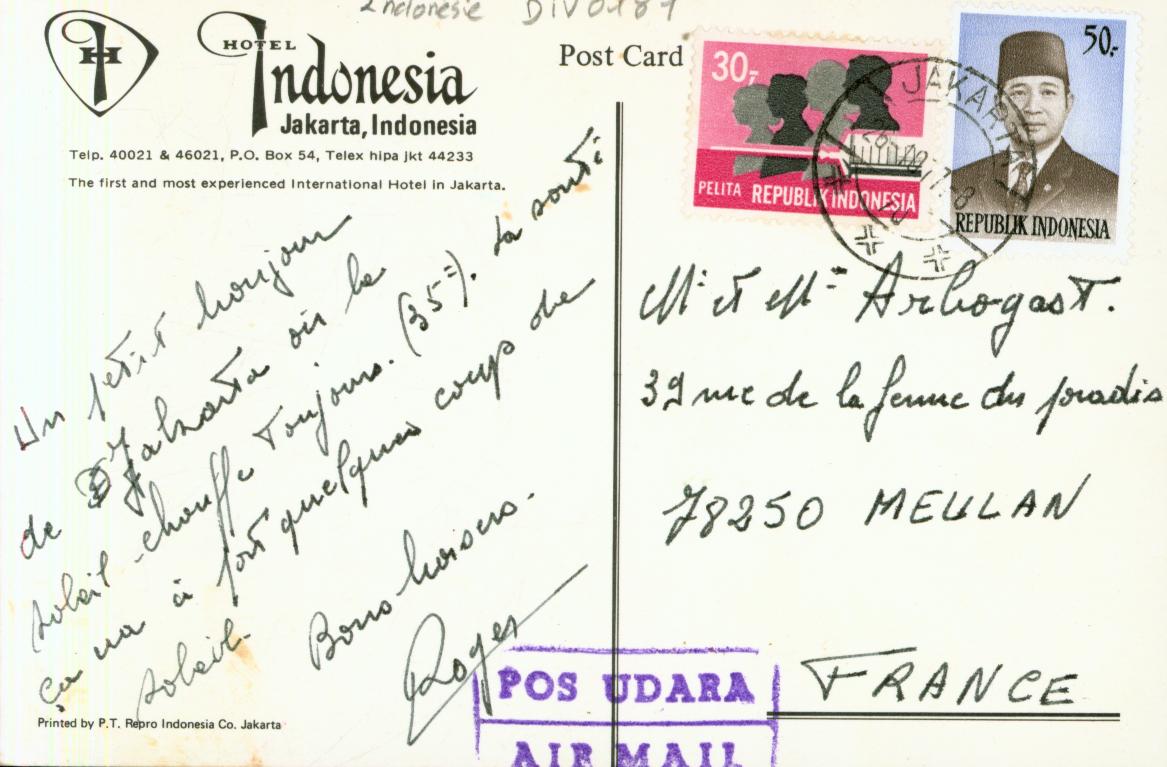 Indonesie DIV0187
H
HOTEL
Indonesia
Jakarta, Indonesia
Telp. 40021 & 46021, P.O. Box 54, Telex hipa jkt 44233
The first and most experienced International Hotel in Jakarta.
Post Card
30,-
PELITA REPUBLIK INDONESIA
50,-
REPUBLIK INDONESIA
JAKARTA
Un petit bonjour
de Jakarta où le
soleil chauffe toujours. (35°). La santé
ça va à part quelques coups de
soleil.
Bons baisers.
Roger
Mr et Mme Arbogast.
39 rue de la ferme du paradis
78250 MEULAN
FRANCE
POS UDARA
AIR MAIL
Printed by P.T. Repro Indonesia Co. Jakarta